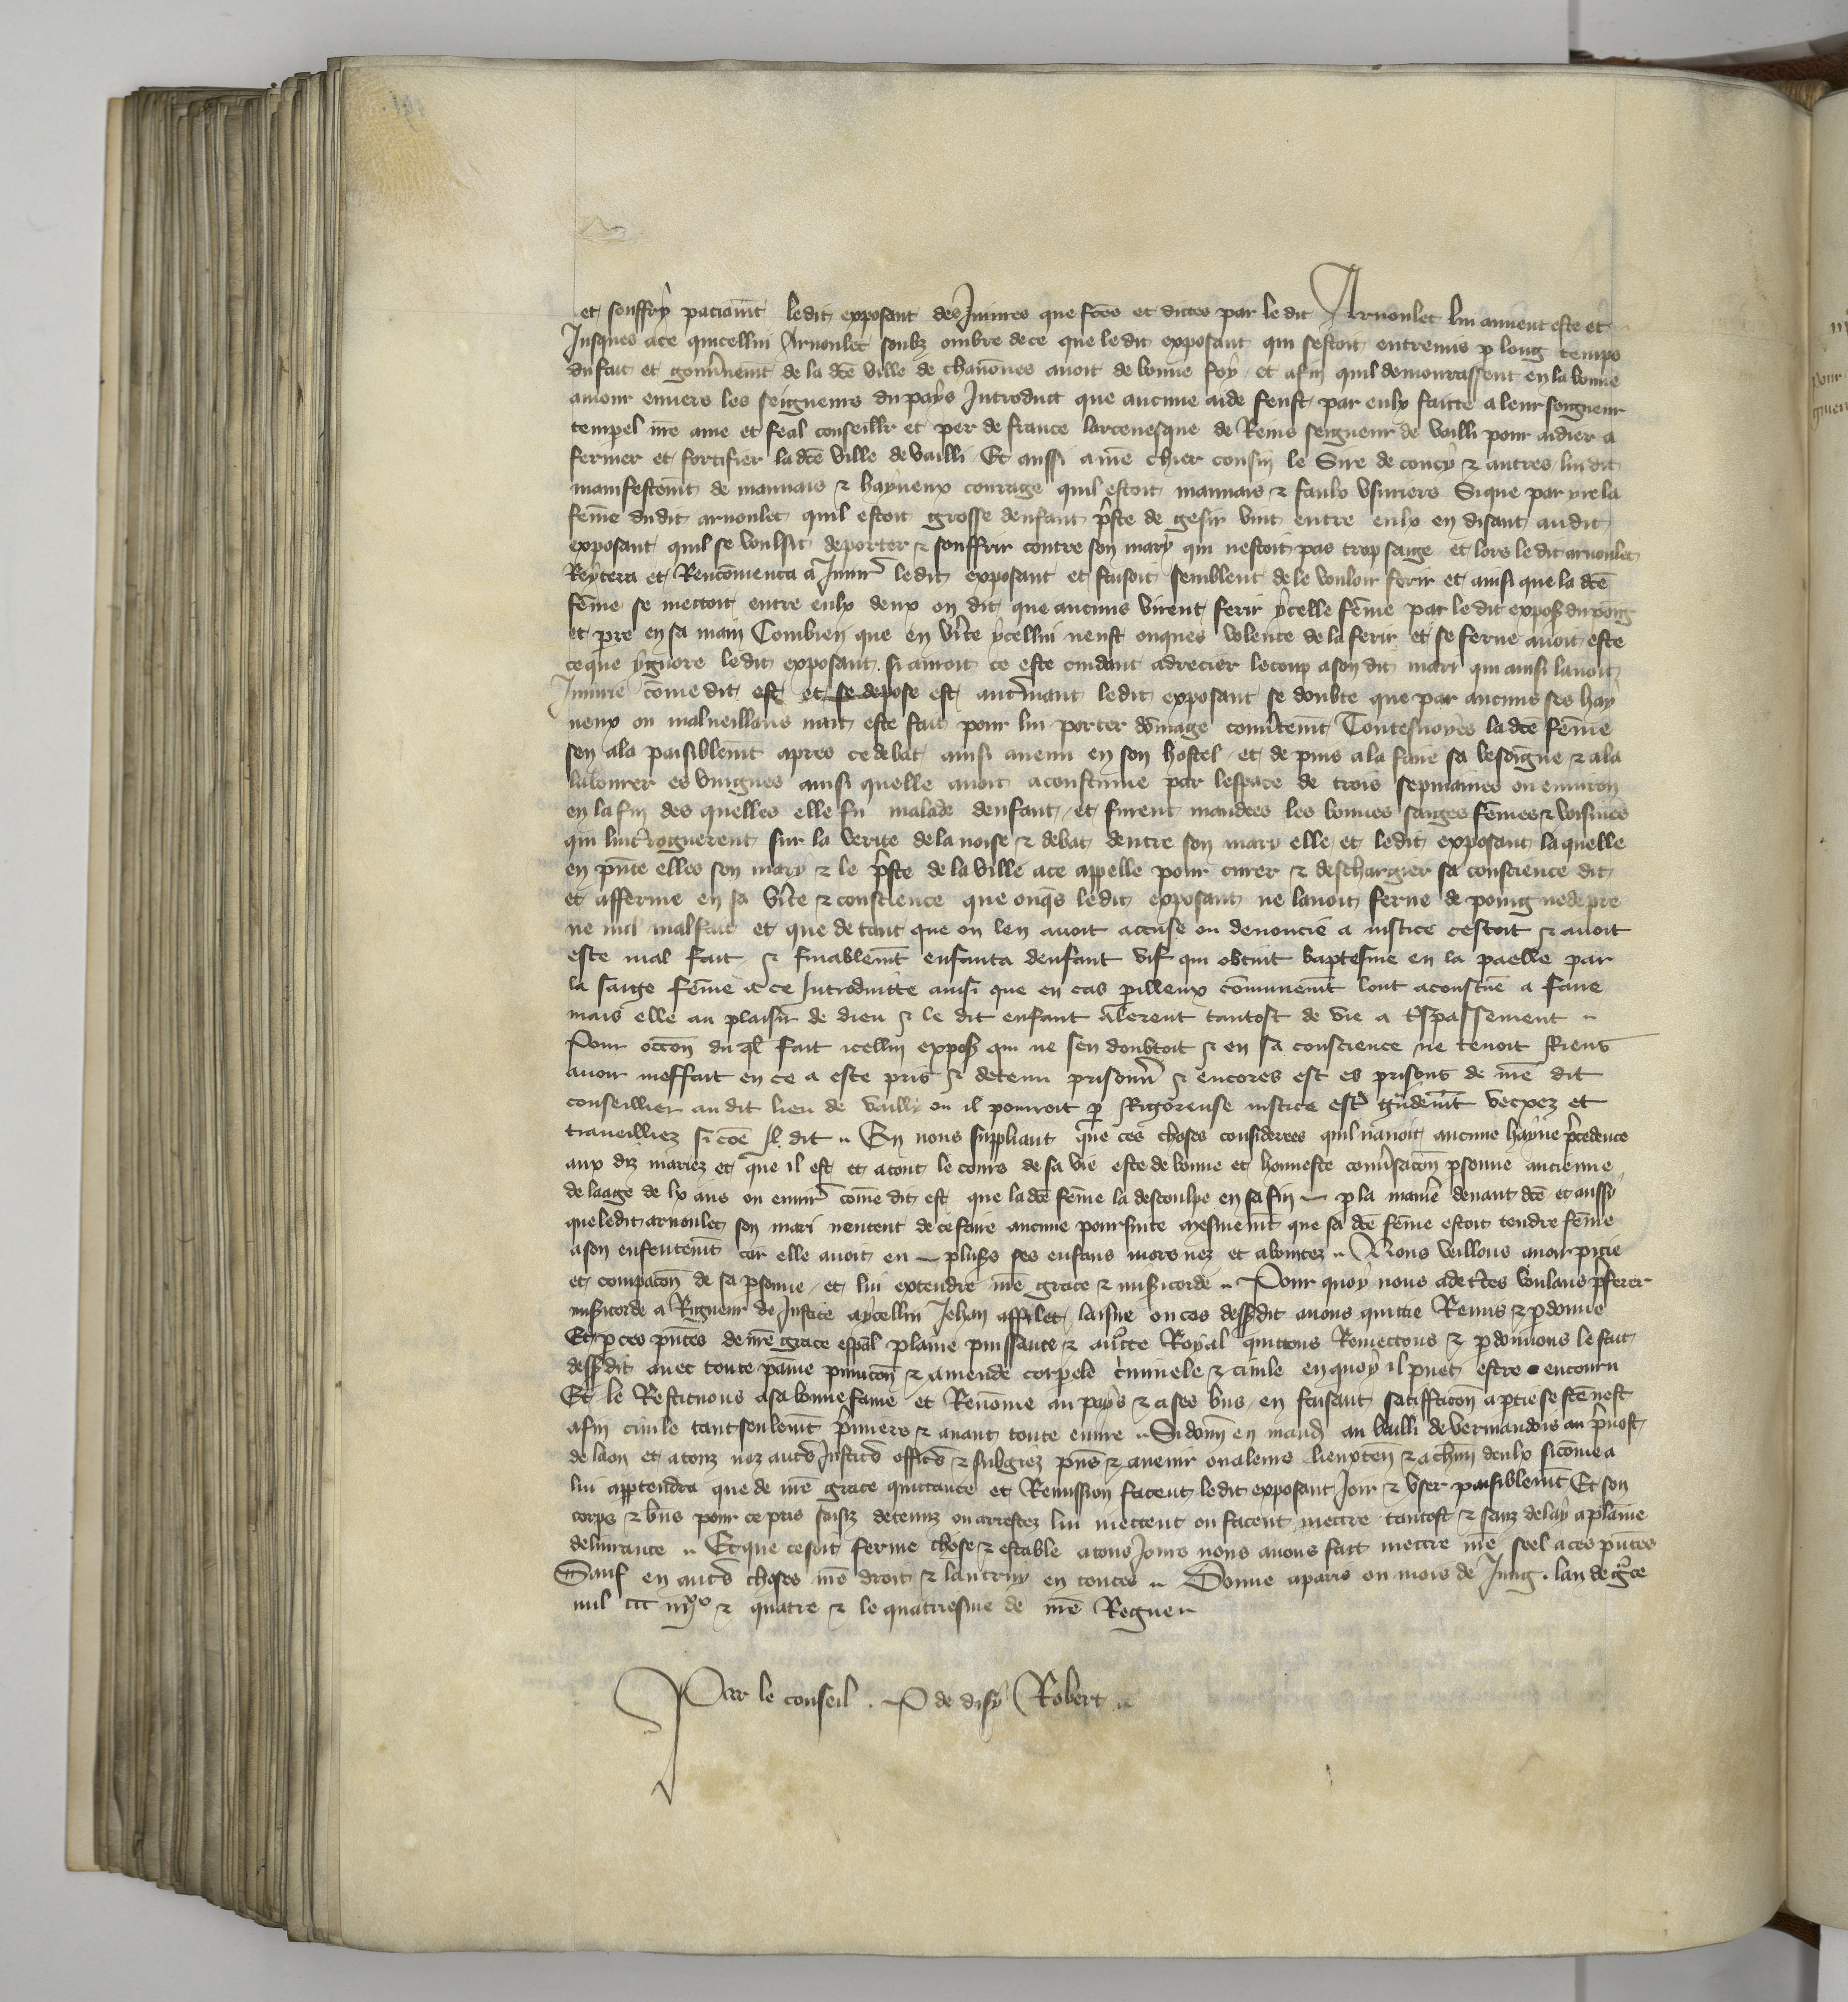 et souffry paciāmt ledit exposant des Iniures que fc̄es et dictes par le dit Arnoulet lui auient este et
Iusques ace quicellui Arnoulet soubz ombre de ce que ledit exposant qui sestoit entremis p long temps
du fait et gouūnemt de la dc̄e ville de chauōnes auoit de bonne foy et afin quil demourassent en la bonne
amour enuers les seigneurs du pays Introduit que aucune aide feust par eulx faitte a leur seigneur
tempel nr̄e ame et feal conseillr et per de france larceuesque de Reins seigneur de vailli pour aidier a
fermer et fortifier la dc̄e ville de vailli Et aussi a nr̄e chier cousin le Sire de coucy & autres lui dit
manifestemt de mauuais & hayneux courage quil estoit mauuais & faulx vsuriers Si que par yre la
fem̄e dudit arnoulet quil estoit grosse denfant p̄ste de gesir vint entre eulx en disant audit
exposant quil se voulsist deporter & souffrir contre son mary qui nestoit pas trop saige et lors le dit arnoulet
Reytera et Rencōmenca a Iniur ledit exposant et faisoit semblent de le vouloir ferir et ainsi que la dc̄e
fēme se mettoit entre eulx deux on dit que aucuns virent ferir ycelle fēme par le dit expos du poing
et pr̄e en sa main Combien que en vīte ycellui neust onques volente de la ferir et se ferue auoit este
ce que ygnore ledit exposant si auroit ce este cuidant adrecier le coup a son dit mari qui ainsi lauoit
Iniurie cōme dit est et se depose est autr̄mant ledit exposant se doubte que par aucuns ses hay
neux ou malueillans nait este fait pour lui porter dōmage Toutesuoyes la dc̄e fēme
sen ala paisiblemt apres ce debat ainsi auenu en son hostel et depuis ala faire sa besoigne & ala
labourer es vingnes ainsi quelle auoit acoustume par lespace de trois sepmaines ou enuiron
en la fin des quelles elle fu malade denfant et furent mandees les bonnes saiges fēmes & voisines
qui lint̄roguerent sur la verite de la noise & debat dentre son mary elle et ledit exposant laquelle
en pn̄te elles son mary & le p̄ste de la ville ace appelle pour curer & deschargier sa conscience dit
et afferme en sa vīte & conscience que onq̄s ledit exposant ne lauoit ferue de poing ne de pr̄e
ne mal fait et que de tant que on len auoit accuse ou denoncie a iustice cestoit & auoit
este mal fait & finablemt enfanta denfant vif qui obtint baptesme en la paelle par
la saige fēme a ce Introduitte ainsi que en cas pilleux cōmunemt lont acoustūe a faire
mais elle au plaisir de dieu & le dit enfant alerent tantost de vie a t̄spassement
Pour occōn du q̄l fait icellui expos qui ne sen doubtoit & en sa conscience ne tenoit Riens
auoir meffait en ce a este pris & detenu prisonn̄ & encores est es prisons de nr̄e dit
conseillier au dit lieu de vailly ou il pourroit p Rigoreuse iustice est gn̄demt vexez et
trauelliez si cōe Il dit En nous suppliant que ces choses considerees quil nauoit aucune hayne p̄cedence
aux diz mariez et que il est et a tout le cours de sa vie este de bonne et honneste conūsacōn psonne ancienne
de laage de lx ans ou enuir cōme dit est que la dc̄e fēme la descoulpe en sa fin p la manie deuant dc̄e et aussy
que ledit arnoulet son mari nentent de ce faire aucune poursuite mesmemt que sa dc̄e fēme estoit tendre fēme
a son enfentemt car elle auoit eu plus ses enfans mors nez et abontez Nous veillons auoir pitie
et compacōn de sa psonne et lui extendre nr̄e grace & misicorde Pour quoy nous adc̄tes voulans p̄ferer
misicorde a Rigueur de Iustice aycellui Iehan affilet laisne ou cas dessdit auons quitte Remis & pdonne
Et p ces pn̄tes de nr̄e grace espāl plaine puissance & auc̄te Royal quittons Remettons & pdonnons le fait
dessdit auec toute paine punicōn & amende corpele criminele & ciuile en quoy il puet estre encouru
Et le Restituons a sa bonne fame et Renōme au pays & a ses bn̄s en faisant satiffacōn a ptie se fc̄e nest
afin ciuile tant seulemt p̄miers & auant toute euure Si donn en mand au bailli de vermandois au p̄uost
de laon et a touz noz aut̄s Iustic̄s offic̄s & subgiez pn̄s & auenir ou a leurs lieuxten̄ & achūn deulx si come a
lui apptendra que de nr̄e grace quittance et Remission facent ledit exposant Ioir & vser paisiblemt Et son
corps & bn̄s pour ce pris saisiz detenuz ou arrestez lui mettent ou facent mettre tantost & sanz delay a plaine
deliurance Et que ce soit ferme chose & estable a tous Iours nous auons fait mettre nr̄e seel a ces pn̄tes
Sauf en aut̄s choses nr̄e droit & lautruy en toutes Donne a paris ou mois de Iuing lan de gr̄ce
mil ccc iiijxx & quatre & le quatriesme de nr̄e Regne
Par le conseil . P de disy Robert